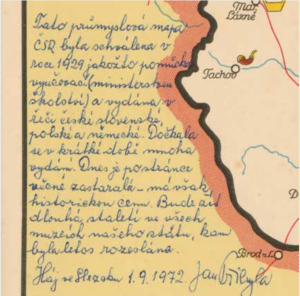 Tato průmyslová mapa
ČSR byla schválena v
roce 1929 jakožto pomůcka
vyučovací (ministerstvem
školství) a vydána v
řeči české slovenské,
polské a německé. Dočkala
se v krátké době mnoha
vydání. Dnes je po stránce
věcné zastaralá – má však
historickou cenu. Bude asi
dlouhá staletí ve všech
muzeích našeho státu, kam
byla letos rozeslána.
Háj ve Slezsku 1.9.1972. Jan
Mar.
Lázně
Tachov
Brod n.L.
D